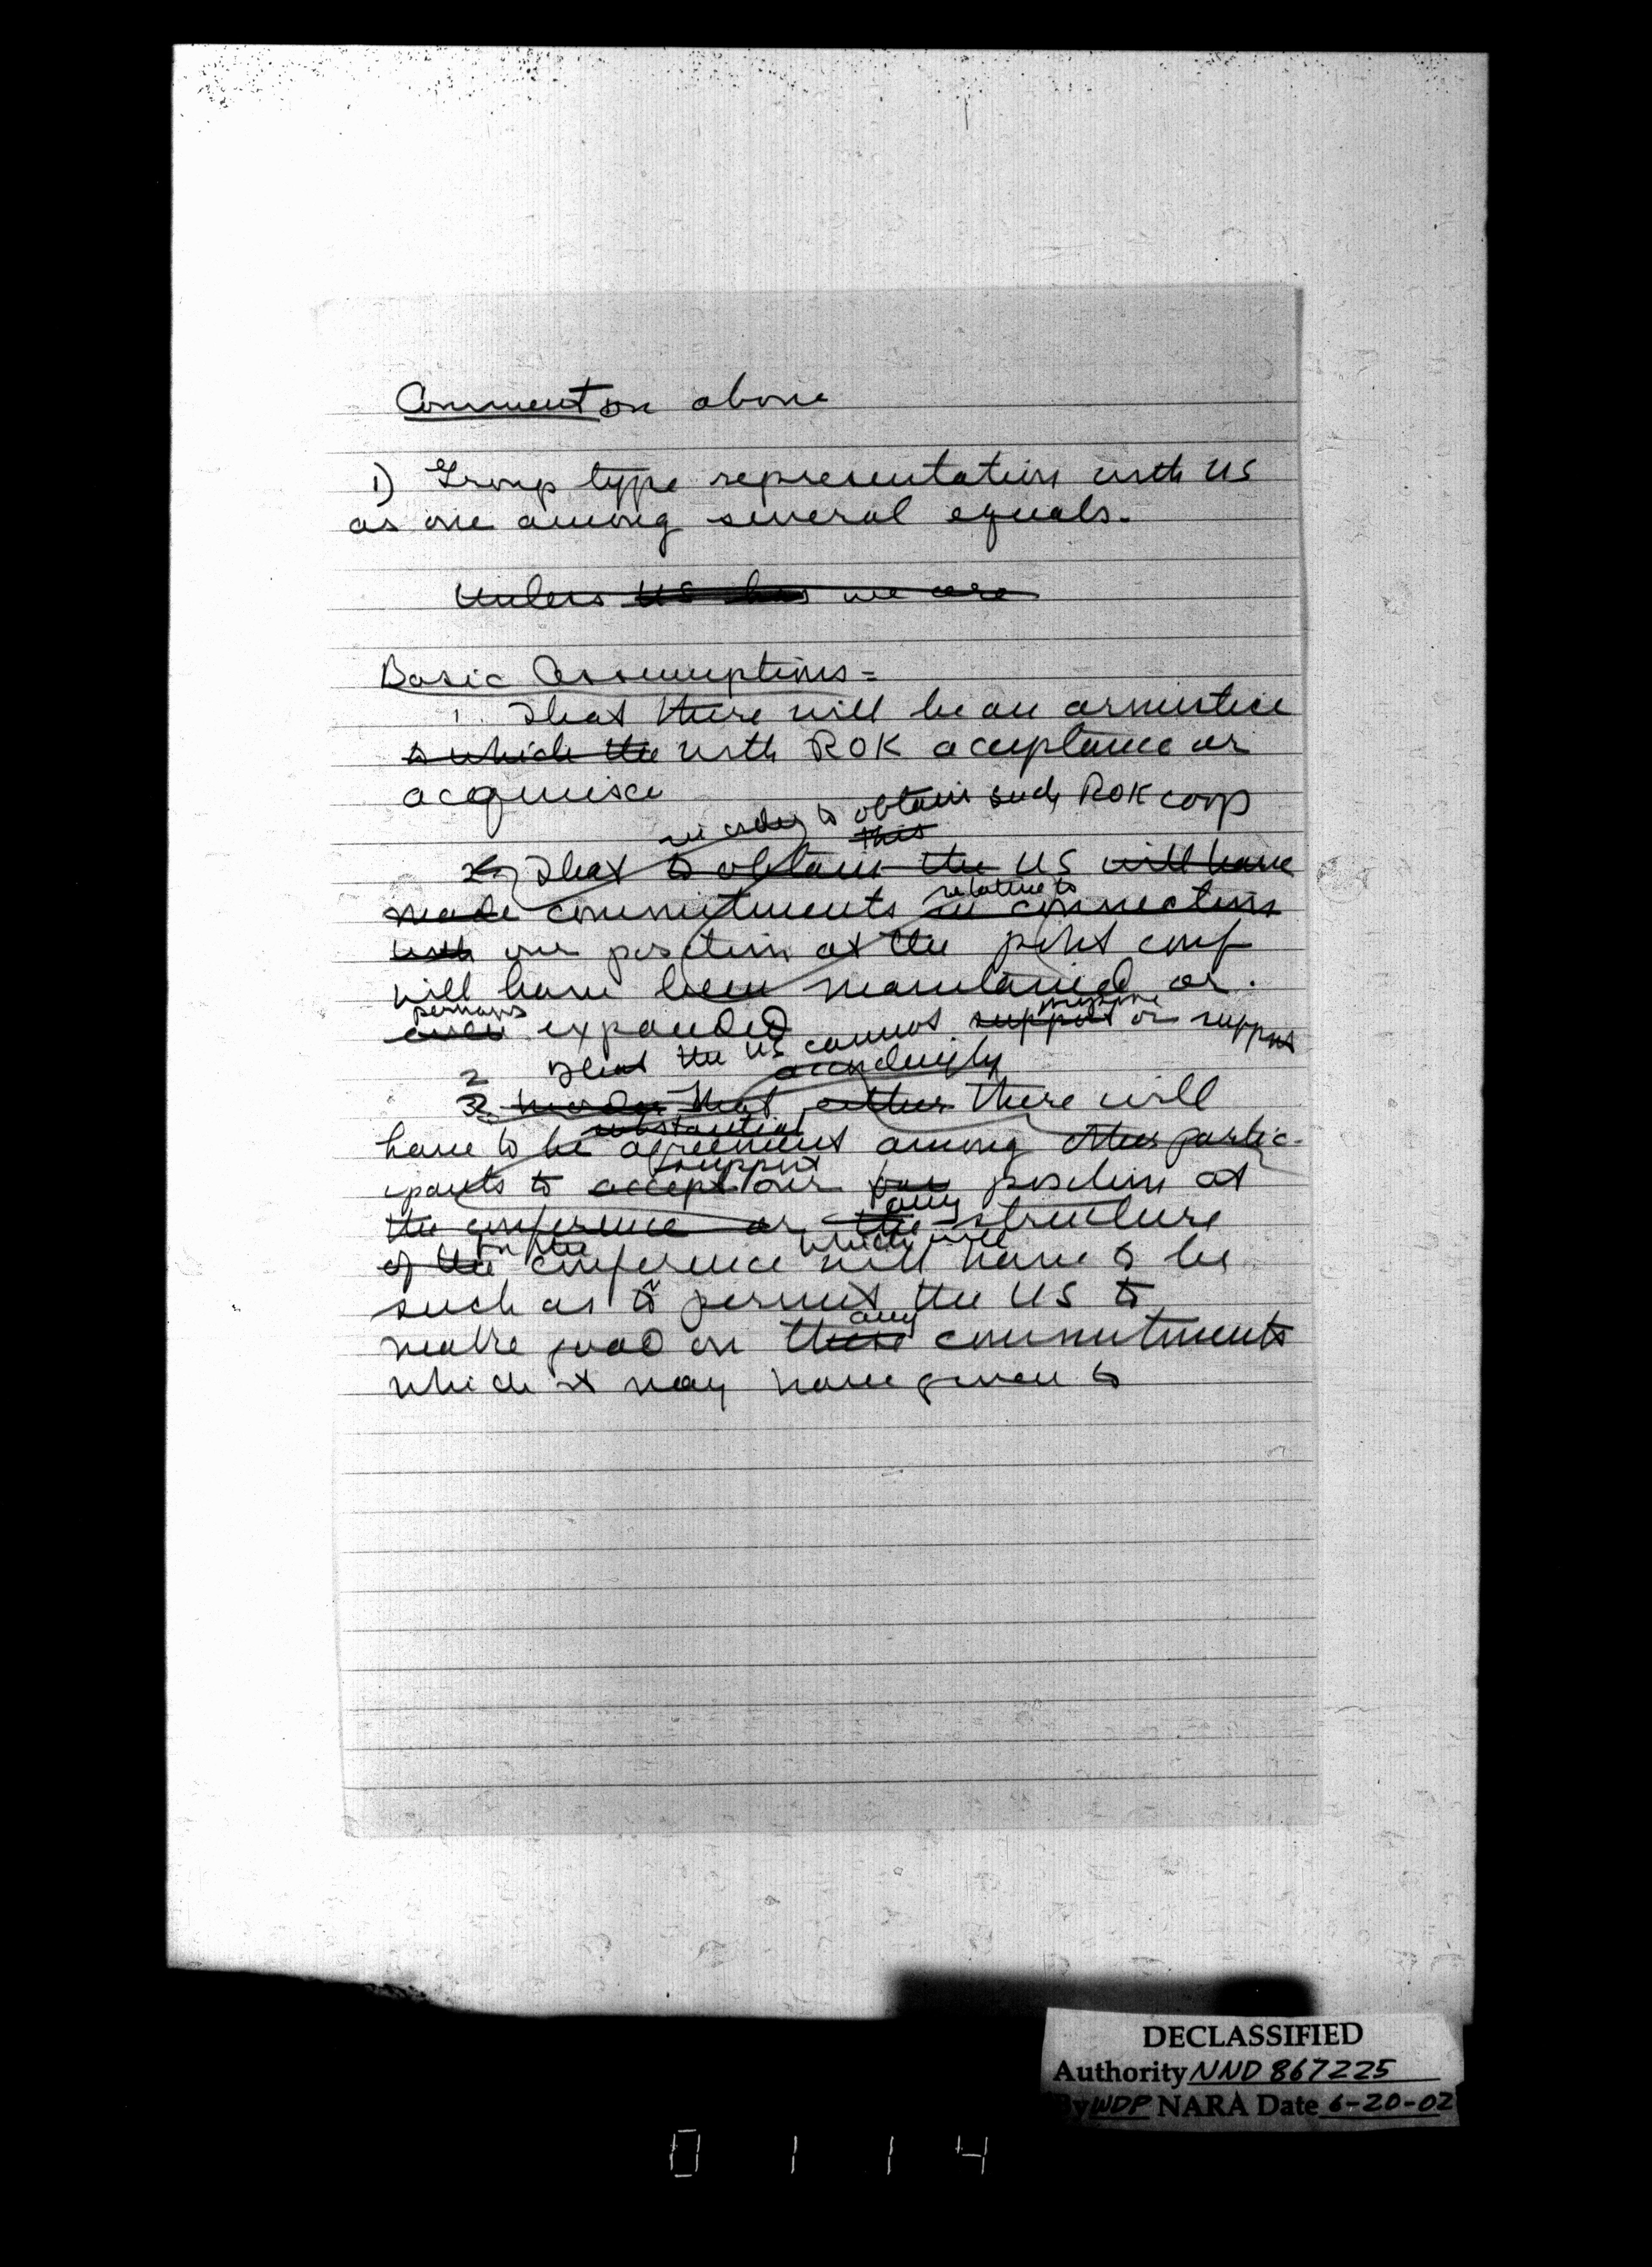 Comment on above
1) Group type representation with US
as one among several equals.
Unless US has we are
Basic Assumptions =
1. That there will be an armistice
to which the with ROK acceptance or
acquiesce
in order to obtain such ROK coop
this
2) That to obtain the US will have
relative to
made commitments in connection
with our position at the polit conf
will have been maintained or
perhaps
even expanded
2 That the US cannot support or support
accordingly
3. That either there will
substantial
have to be agreement among other partic-
support
ipants to accept our position at
any
the conference or the structure
for the which will
of the conference will have to be
such as to permit the US to
any
make good on these commitments
which it may have given to
DECLASSIFIED
Authority NND 867225
By WDP NARA Date 6-20-02
0 1 1 4